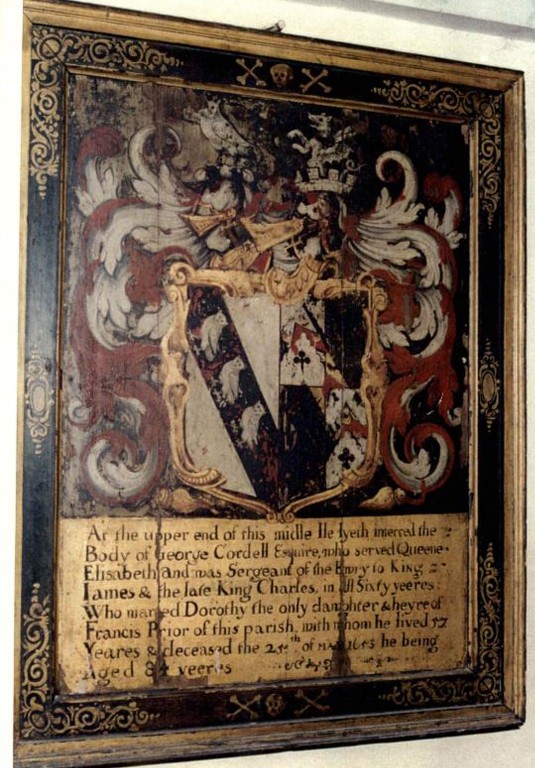 At the upper end of this midle Ile lyeth interred the
Body of George Cordell Esquire, who served Queene
Elisabeth and was Sergeant of the Ewry to King
Iames & the late King Charles, in all Sixty yeeres:
Who married Dorothy the only daughter & heyre of
Francis Prior of this parish, with whom he lived 57
Yeares & deceased the 25th of he being
Aged 84 yeeres